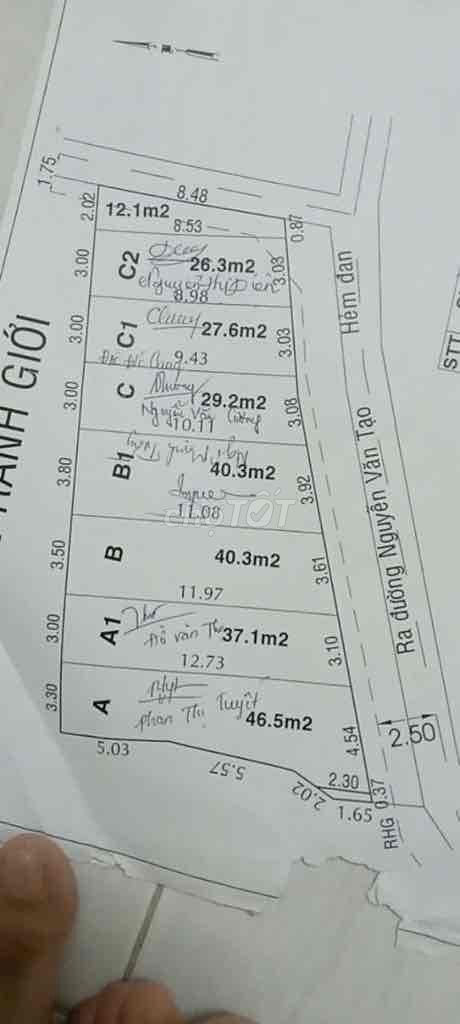 1.75
8.48
2.02
12.1m2
0.87
8.53
3.00
C2
26.3m2
3.03
8.98
3.00
C1
27.6m2
3.03
9.43
3.00
C
29.2m2
3.08
Nguyễn Văn Cường
10.11
3.80
B1
40.3m2
3.92
11.08
chợTỐT
3.50
B
40.3m2
3.61
11.97
3.00
A1
Thơ
Đỗ Văn
37.1m2
3.10
12.73
3.30
A
Phan Thị Tuyết
46.5m2
4.54
5.03
5.57
2.02
2.30
1.65
0.37
RHG
2.50
Hẻm đan
Ra đường Nguyễn Văn Tạo
RANH GIỚI
STT